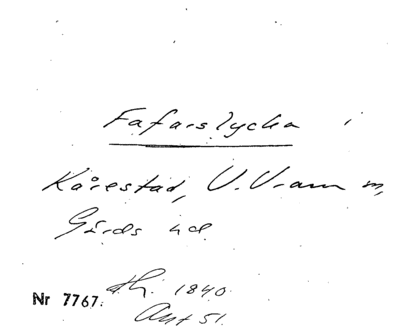 Fafarslycka i
Kårestad, V. Vram m,
Gärds hd.
Nr 7767. Hj. 1840
Akt 51.